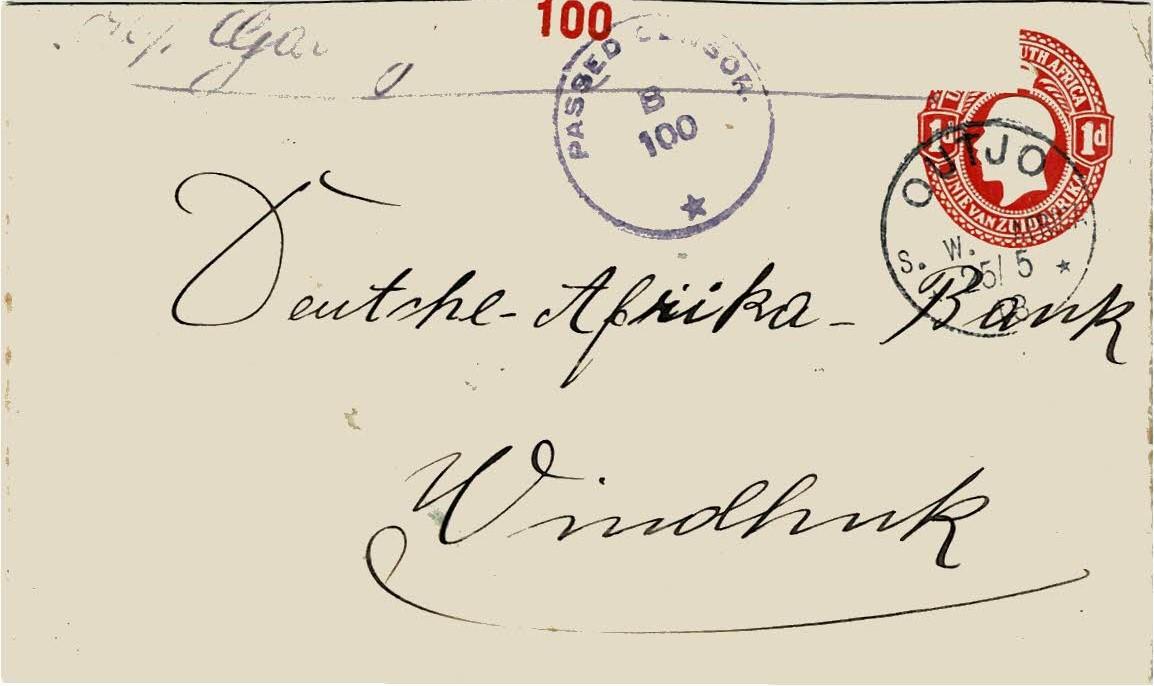 100
PASSED CENSOR.
B
100
UTH AFRICA
1d 1d
UNIE VAN ZUID AFRIKA
OUTJO
S. W.
25/5
Deutshe-Afrika-Bank
Windhuk